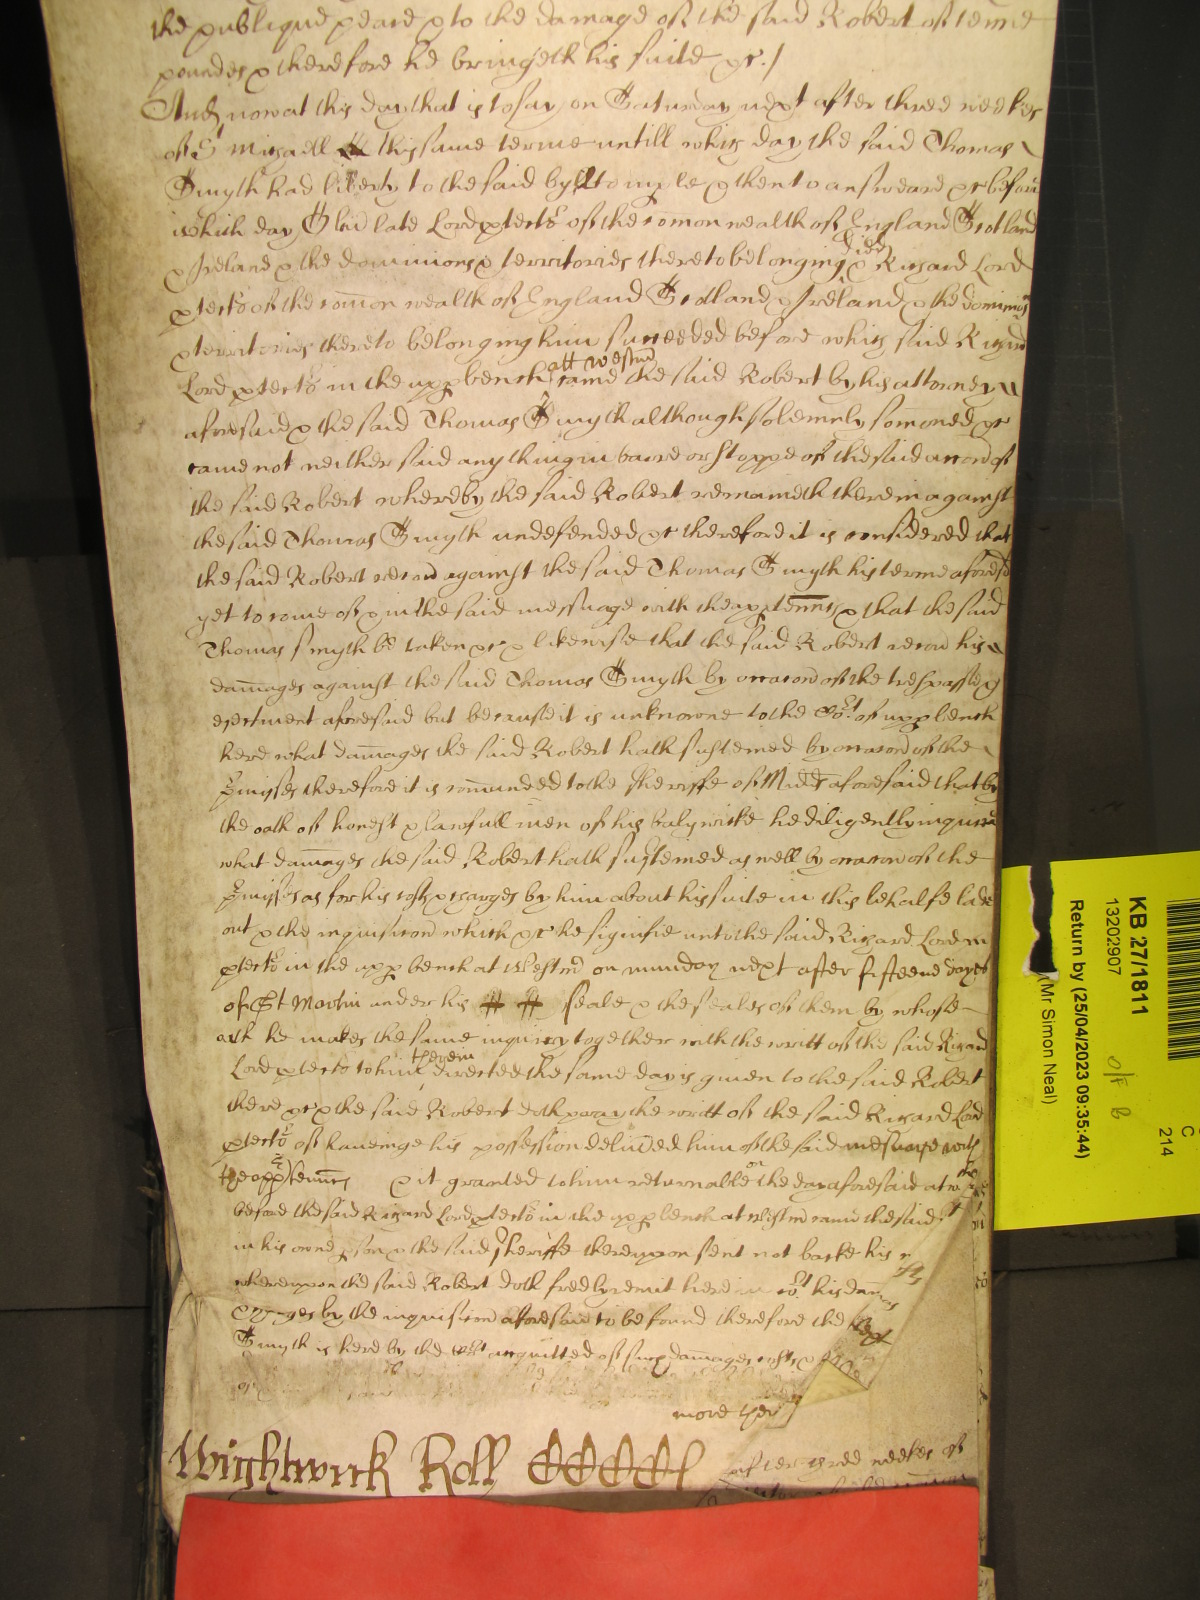 the publique peace & to the damage of the said Robert of tenne
poundes & therefore he bringeth his suite &c./
And now at this day that is to say on Saturday next after three weekes
of St Michaell this same terme untill which day the said Thomas
Smyth had liberty to the said byll to imple & then to answeare &c before
which day Olivr late Lord ptector of the comon wealth of England Scotland
& Ireland & the dominions & territories thereto belonging died & Richard Lord
ptector of the comon wealth of England Scotland & Ireland & the dominions
& territories thereto belonging him succeeded before which said Richard
Lord ptector in the upp bench att Westmr came the said Robert by his attorney
aforesaid & the said Thomas Smyth although solemnly somoned &c
came not neither said any thing in barre or stoppe of the said accord of
the said Robert whereby the said Robert remaineth therein against
the said Thomas Smyth undefended &c therefore it is considered that
the said Robert recov against the said Thomas Smyth his terme aforesd
yet to come of & in the said messuage with the apptennces & that the said
Thomas Smyth be taken &c & likewise that the said Robert recov his
damages against the said Thomas Smyth by occacon of the trespasse &
ejectment aforesaid but because it is unknowne to the Cort of upp bench
here what damages the said Robert hath susteined by occacon of the
pmisses therefore it is comanded to the Sheriffe of Midd aforesaid that by
the oath of honest & lawfull men of his balywicke he diligently inquire
what damages the said Robert hath susteined as well by occacon of the
pmisses as for his costs & charges by him about his suite in this behalfe laid
out & the inquisicon which &c he signifie unto the said Richard Lord
ptector in the upp bench at Westmr on munday next after fifteene dayes
of St Martin under his seale & the seales of them by whose
oath he makes the same inquiry together with the writt of the said Richard
Lord ptector to him therein directed the same day is given to the said Robert
there &c & the said Robert doth pray the writt of the said Richard Lord
ptector of haveinge his possession delived him of the said messuage with
the apptennces & it granted to him returnable on the day aforesaid at
before the said Richard Lord ptector in the upp bench at Westmr came the said
in his owne pson & the said Sheriffe thereupon sent not backe his
whereupon the said Robert doth freely remit here in cort his
by the inquisicon aforesaid to be found therefore the
Smyth is here by the Cort acquitted of such damages costs &
more ther
Wightwick Roll CCCCCl
after three weekes of
KB 27/1811
13202907
Return by (25/04/2023 09:35:44)
(Mr Simon Neal)
o/f B
C
214